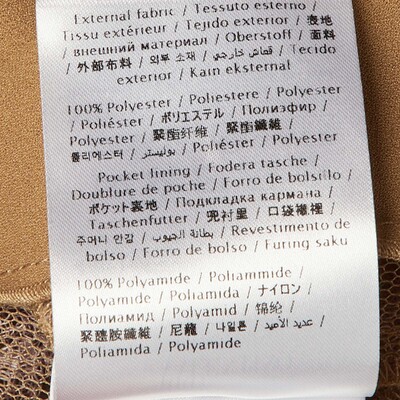 External fabric / Tessuto esterno /
Tissu extérieur / Tejido exterior / 表地
/ внешний материал / Oberstoff / 面料
/ 外部布料 / 외부 소재 / قماش خارجي / Tecido
exterior / Kain eksternal
100% Polyester / Poliestere / Polyester
/ Poliéster / ポリエステル / Полиэфир /
Polyester / 聚酯纤维 / 聚酯纖維 /
폴리에스터 / بوليستر / Poliéster / Polyester
Pocket lining / Fodera tasche /
Doublure de poche / Forro de bolsillo /
ポケット裏地 / Подкладка кармана /
Taschenfutter / 兜衬里 / 口袋襯裡 /
주머니 안감 / بطانة الجيوب / Revestimento de
bolso / Forro de bolso / Furing saku
100% Polyamide / Poliammide /
Polyamide / Poliamida / ナイロン /
Полиамид / Polyamid / 锦纶 /
聚醯胺纖維 / 尼龍 / 나일론 / عديد الأميد /
Poliamida / Polyamide